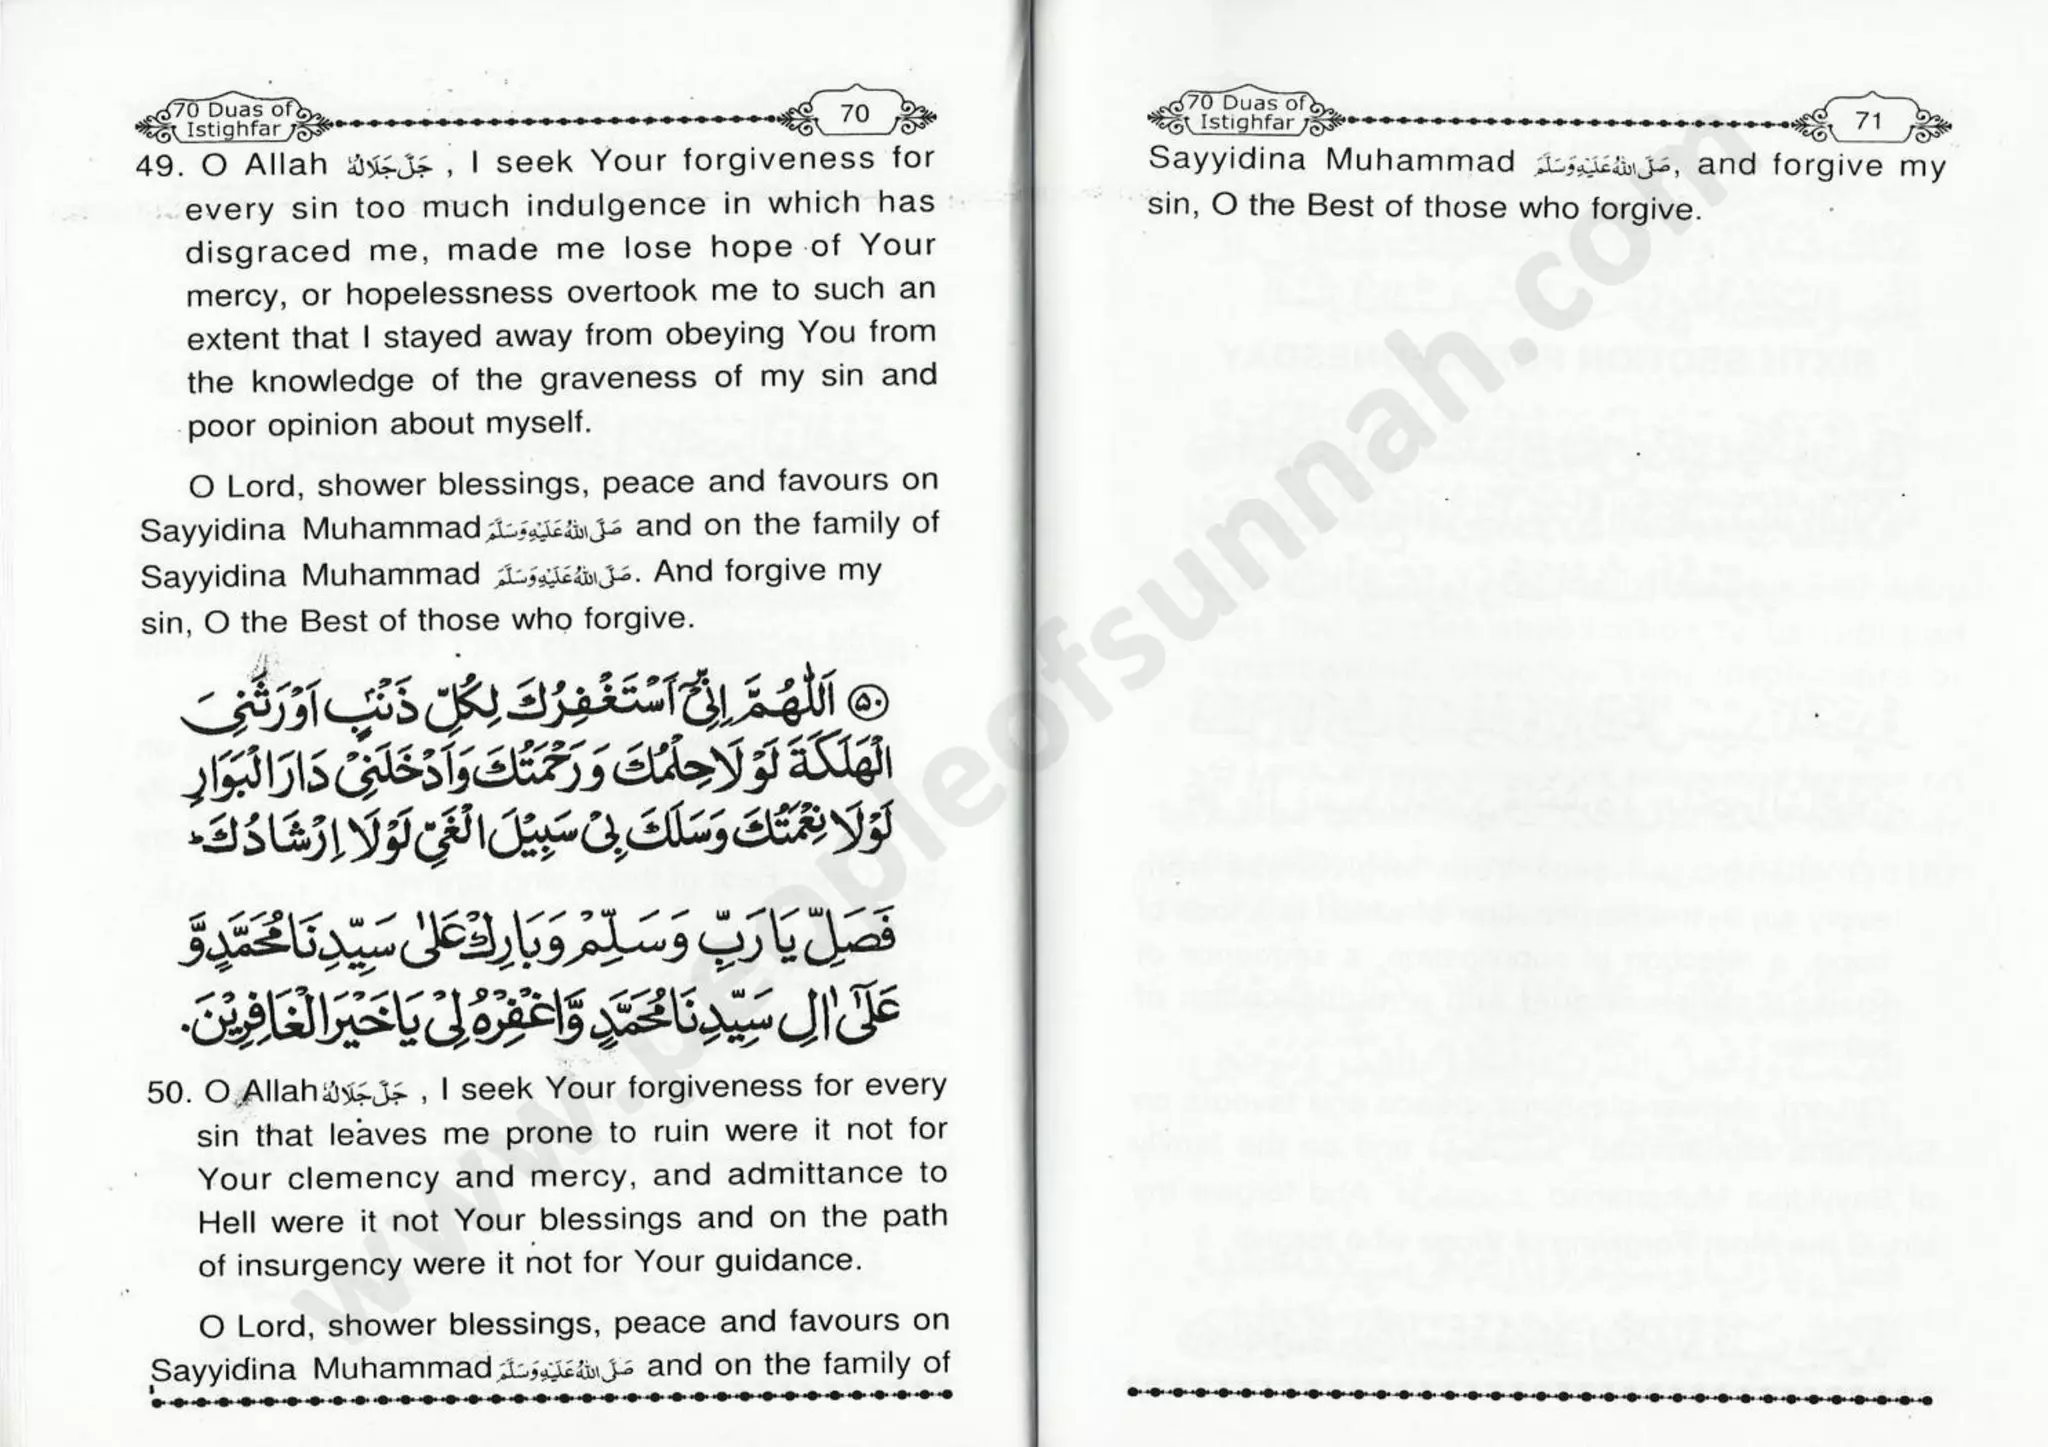 70 Duas of
Istighfar
70
49. O Allah جَلَّ جَلَالُهٗ , I seek Your forgiveness for
every sin too much indulgence in which has
disgraced me, made me lose hope of Your
mercy, or hopelessness overtook me to such an
extent that I stayed away from obeying You from
the knowledge of the graveness of my sin and
poor opinion about myself.
O Lord, shower blessings, peace and favours on
Sayyidina Muhammad صَلَّى اللهُ عَلَيْهِ وَسَلَّمَ and on the family of
Sayyidina Muhammad صَلَّى اللهُ عَلَيْهِ وَسَلَّمَ. And forgive my
sin, O the Best of those who forgive.
۵۰ اَللّٰهُمَّ اِنِّيْٓ اَسْتَغْفِرُكَ لِكُلِّ ذَنْبٍ اَوْرَثَنِيَ
الْهَلَكَةَ لَوْلَا حِلْمُكَ وَرَحْمَتُكَ وَاَدْخَلَنِيْ دَارَ الْبَوَارِ
لَوْلَا نِعْمَتُكَ وَسَلَكَ بِيْ سَبِيْلَ الْغَيِّ لَوْلَا اِرْشَادُكَ
فَصَلِّ يَا رَبِّ وَسَلِّمْ وَبَارِكْ عَلٰى سَيِّدِنَا مُحَمَّدٍ وَّ
عَلٰٓى اٰلِ سَيِّدِنَا مُحَمَّدٍ وَّاغْفِرْهُ لِيْ يَا خَيْرَ الْغَافِرِيْنَ.
50. O Allah جَلَّ جَلَالُهٗ , I seek Your forgiveness for every
sin that leaves me prone to ruin were it not for
Your clemency and mercy, and admittance to
Hell were it not Your blessings and on the path
of insurgency were it not for Your guidance.
O Lord, shower blessings, peace and favours on
Sayyidina Muhammad صَلَّى اللهُ عَلَيْهِ وَسَلَّمَ and on the family of
70 Duas of
Istighfar
71
Sayyidina Muhammad صَلَّى اللهُ عَلَيْهِ وَسَلَّمَ, and forgive my
sin, O the Best of those who forgive.
www.peopleofsunnah.com